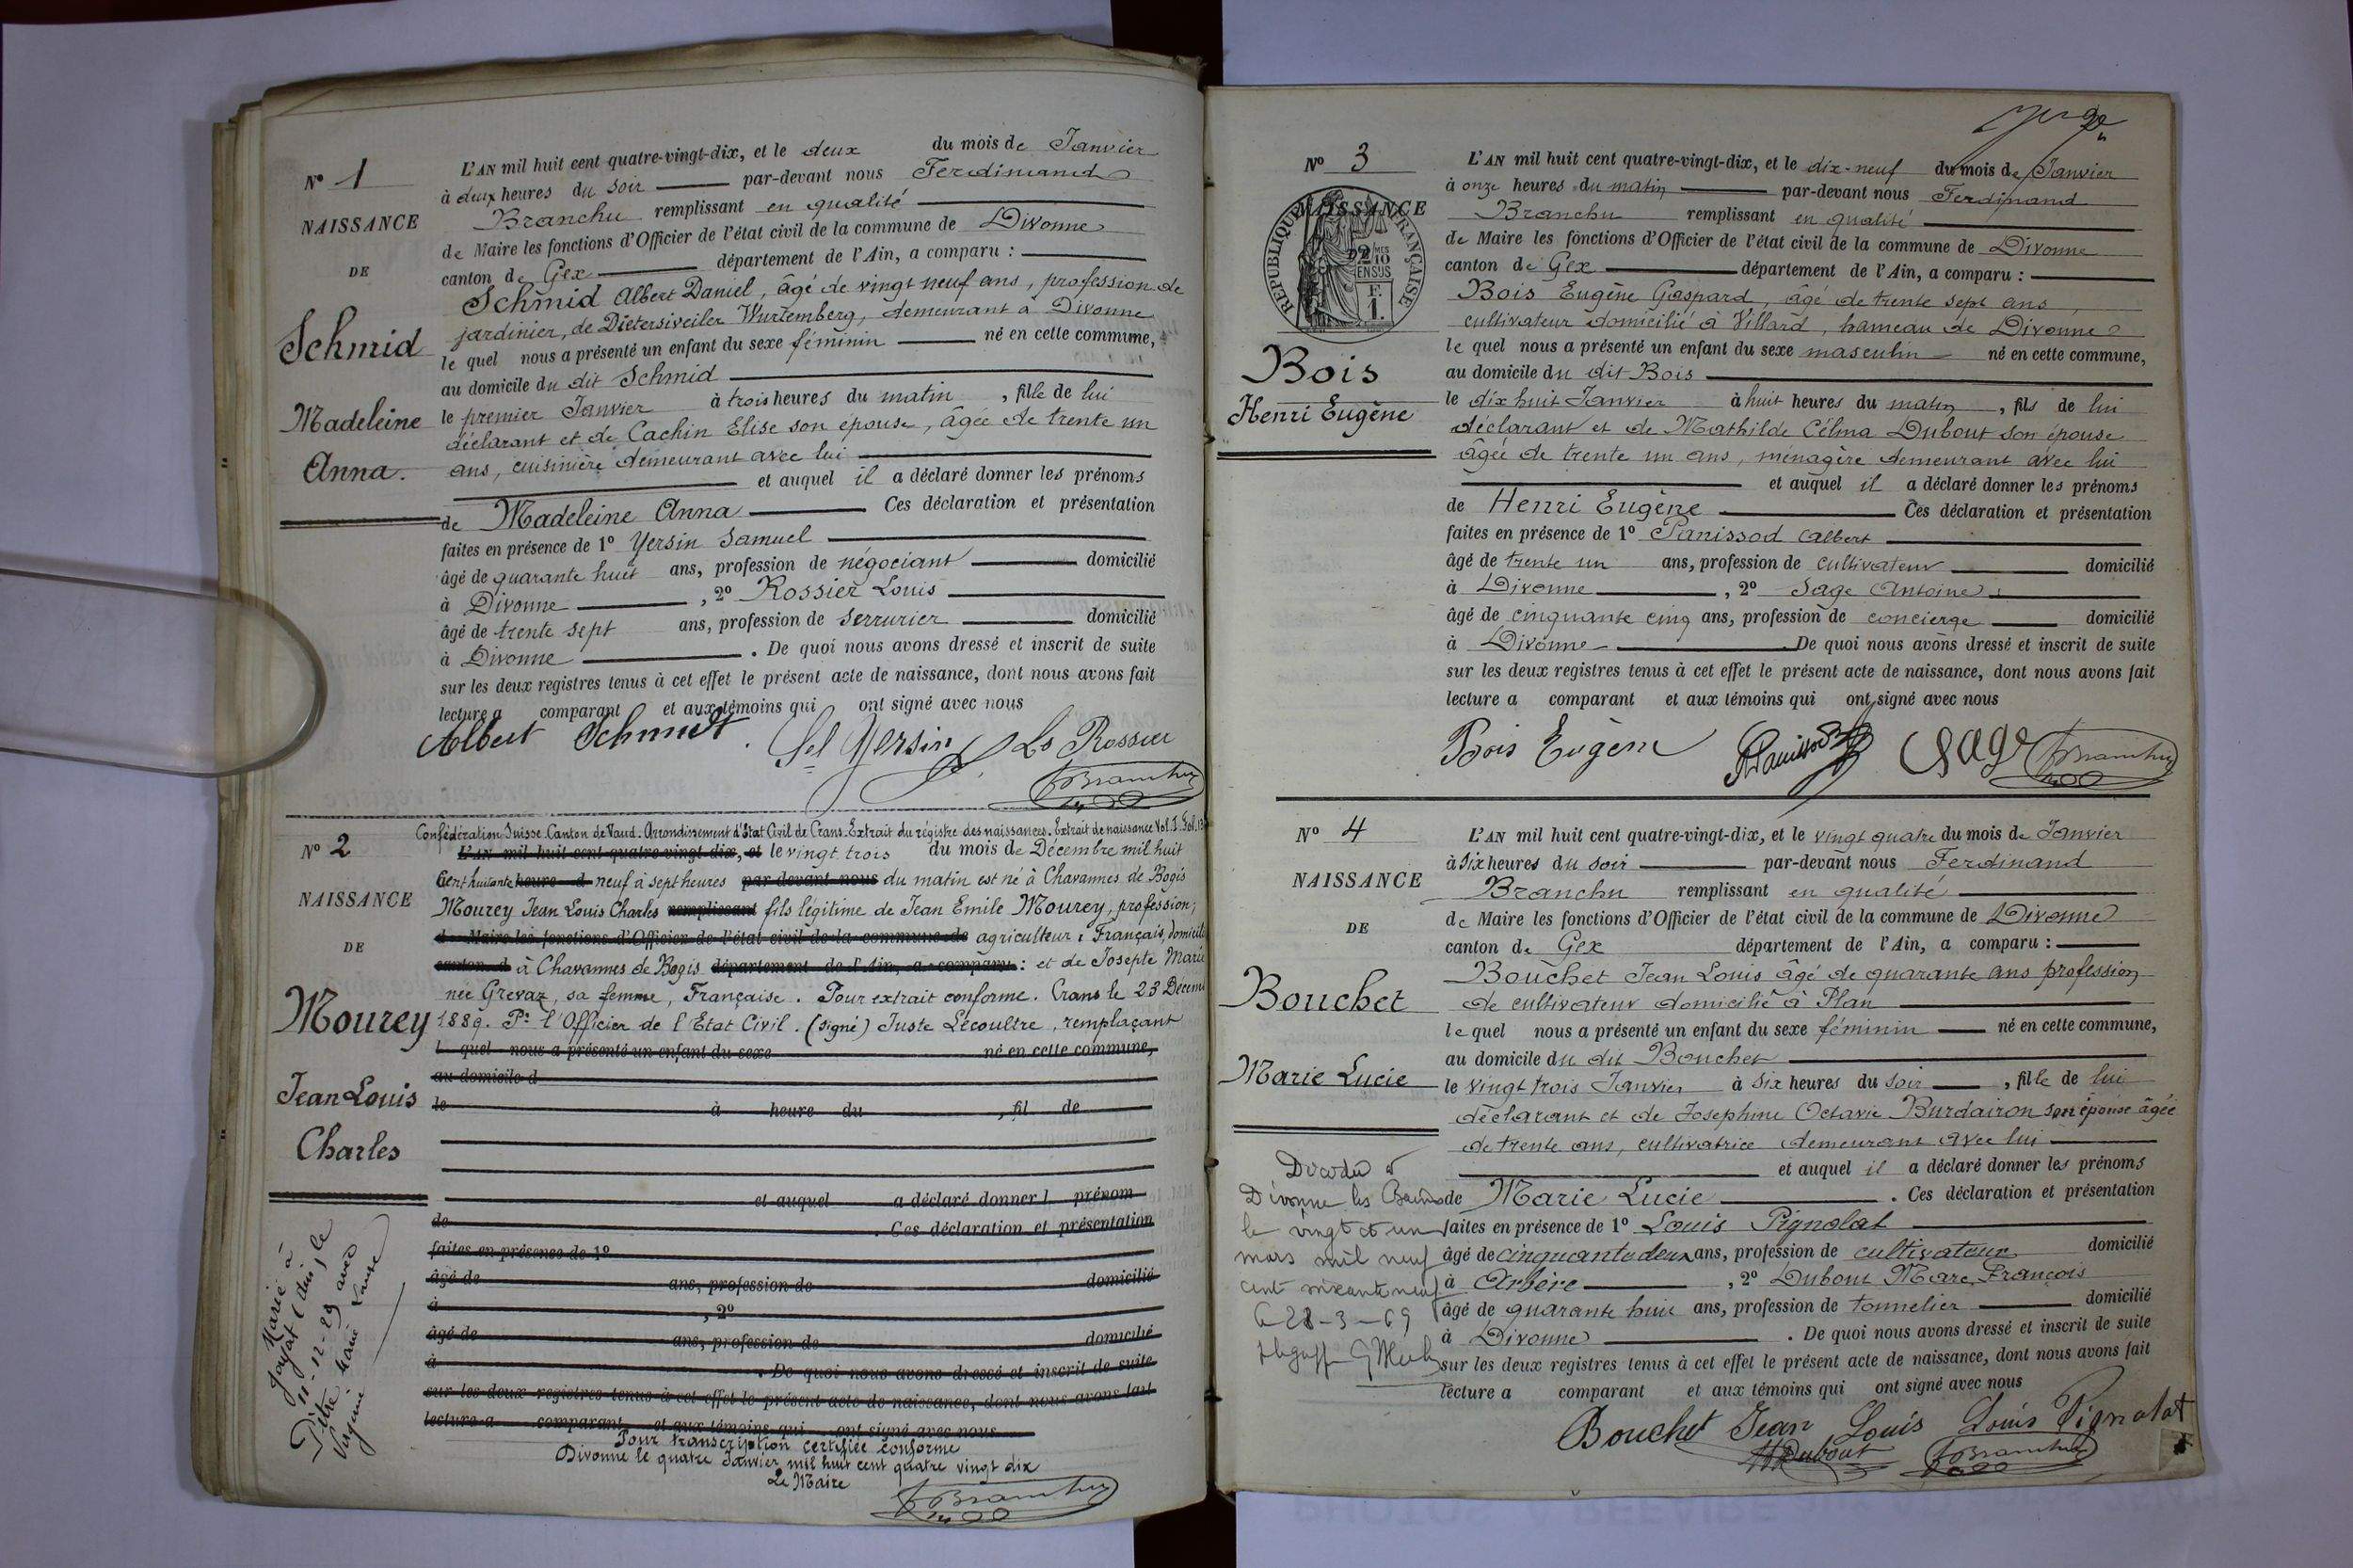 N° 1
NAISSANCE
DE
Schmid
Madeleine
Anna.
L'AN mil huit cent quatre-vingt-dix, et le deux du mois de Janvier
à deux heures du soir par-devant nous Ferdinand
Branchu remplissant en qualité
de Maire les fonctions d'Officier de l'état civil de la commune de Divonne
canton de Gex département de l'Ain, a comparu :
Schmid Albert Daniel, âgé de vingt neuf ans, profession de
jardinier, de Dietersweiler Wurtemberg, demeurant à Divonne
le quel nous a présenté un enfant du sexe féminin né en cette commune,
au domicile du dit Schmid
le premier Janvier à trois heures du matin, fille de lui
déclarant et de Cachin Elise son épouse, âgée de trente un
ans, cuisinière demeurant avec lui
et auquel il a déclaré donner les prénoms
de Madeleine Anna Ces déclaration et présentation
faites en présence de 1° Yersin Samuel
âgé de quarante huit ans, profession de négociant domicilié
à Divonne, 2° Rossier Louis
âgé de trente sept ans, profession de serrurier domicilié
à Divonne. De quoi nous avons dressé et inscrit de suite
sur les deux registres tenus à cet effet le présent acte de naissance, dont nous avons fait
lecture a comparant et aux témoins qui ont signé avec nous
Albert Schmidt. Sel Yersin Ls Rossier
Branchu
N° 2
NAISSANCE
DE
Mourey
Jean Louis
Charles
Marié à
le
11-12-29 avec
Marie Louise
Virginie
Confédération Suisse. Canton de Vaud. Arrondissement d'Etat Civil de Crans. Extrait du régistre des naissances. Extrait de naissance Vol. I. Fol.
L'AN mil huit cent quatre-vingt-dix, et le vingt trois du mois de Décembre mil huit
cent huitante heure d neuf à sept heures par-devant nous du matin est né à Chavannes de Bogis
Mourey Jean Louis Charles remplissant fils légitime de Jean Emile Mourey, profession,
d Maire les fonctions d'Officier de l'état civil de la commune de agriculteur, Français, domicilié
canton d à Chavannes de Bogis département de l'Ain, a comparu : et de Josepte Marie
née Grevaz, sa femme, Française. Pour extrait conforme. Crans le 23 Décem
1889. Pr l'Officier de l'Etat Civil. (signé) Juste Lecoultre, remplaçant
l quel nous a présenté un enfant du sexe né en cette commune,
au domicile d
le à heure du , fil de
et auquel a déclaré donner l prénom
de . Ces déclaration et présentation
faites en présence de 1°
âgé de ans, profession de domicilié
à , 2°
âgé de ans, profession de domicilié
à . De quoi nous avons dressé et inscrit de suite
sur les deux registres tenus à cet effet le présent acte de naissance, dont nous avons fait
lecture a comparant et aux témoins qui ont signé avec nous
Pour transcription certifiée conforme
Divonne le quatre Janvier mil huit cent quatre vingt dix
Le Maire
Branchu
N° 3
NAISSANCE
DE
RÉPUBLIQUE FRANÇAISE
2/10
EN SUS
F.
1.
Bois
Henri Eugène
L'AN mil huit cent quatre-vingt-dix, et le dix-neuf du mois de Janvier
à onze heures du matin par-devant nous Ferdinand
Branchu remplissant en qualité
de Maire les fonctions d'Officier de l'état civil de la commune de Divonne
canton de Gex département de l'Ain, a comparu :
Bois Eugène Gaspard, âgé de trente sept ans,
cultivateur domicilié à Villard, hameau de Divonne
le quel nous a présenté un enfant du sexe masculin né en cette commune,
au domicile du dit Bois
le dix huit Janvier à huit heures du matin, fils de lui
déclarant et de Mathilde Célina Dubout son épouse
âgée de trente un ans, ménagère demeurant avec lui
et auquel il a déclaré donner les prénoms
de Henri Eugène Ces déclaration et présentation
faites en présence de 1° Panissod Albert
âgé de trente un ans, profession de cultivateur domicilié
à Divonne, 2° Sage Antoine
âgé de cinquante cinq ans, profession de concierge domicilié
à Divonne. De quoi nous avons dressé et inscrit de suite
sur les deux registres tenus à cet effet le présent acte de naissance, dont nous avons fait
lecture a comparant et aux témoins qui ont signé avec nous
Bois Eugène Panissod Sage Branchu
N° 4
NAISSANCE
DE
Bouchet
Marie Lucie
Décédée à
Divonne les Bains
le vingt et un
mars mil neuf
cent soixante neuf
le 28-3-69
L'AN mil huit cent quatre-vingt-dix, et le vingt quatre du mois de Janvier
à six heures du soir par-devant nous Ferdinand
Branchu remplissant en qualité
de Maire les fonctions d'Officier de l'état civil de la commune de Divonne
canton de Gex département de l'Ain, a comparu :
Bouchet Jean Louis âgé de quarante ans profession
de cultivateur domicilié à Plan
le quel nous a présenté un enfant du sexe féminin né en cette commune,
au domicile du dit Bouchet
le vingt trois Janvier à six heures du soir, fille de lui
déclarant et de Josephine Octavie Burdairon son épouse âgée
de trente ans, cultivatrice demeurant avec lui
et auquel il a déclaré donner les prénoms
de Marie Lucie. Ces déclaration et présentation
faites en présence de 1° Louis Pignolat
âgé de cinquante deux ans, profession de cultivateur domicilié
à Arbère, 2° Dubout Marc François
âgé de quarante huit ans, profession de tonnelier domicilié
à Divonne. De quoi nous avons dressé et inscrit de suite
sur les deux registres tenus à cet effet le présent acte de naissance, dont nous avons fait
lecture a comparant et aux témoins qui ont signé avec nous
Bouchet Jean Louis Louis Pignolat
Dubout Branchu